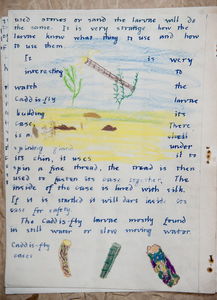 used stones or sand the larvae will do
the same. It is very strange how the
larvae know what thing to use and how
to use them.
It is very
interesting to
watch the
Caddis-fly larvae
building its
case. There
is a small
spinning gland under
its chin, it uses it to
spin a fine thread, the tread is then
used to fasten its case together. The
inside of the case is lined with silk.
If it is startled it will dart inside its
case for safety.
The Caddis-fly larvae mostly found
in still water or slow moving water.
Caddis-fly
cases